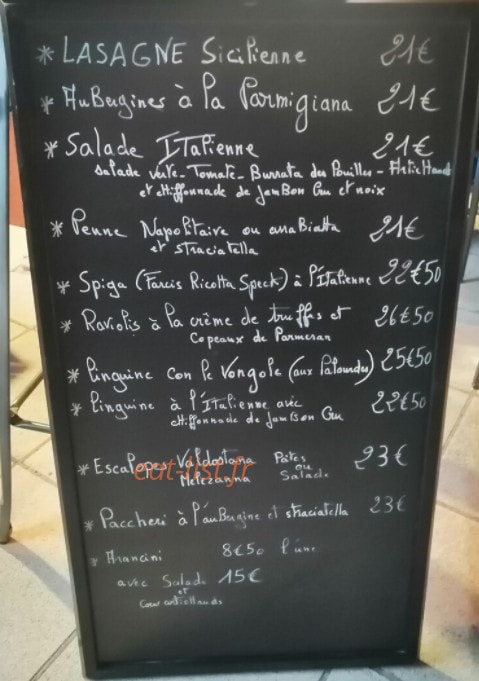 * LASAGNE Sicilienne 21€
* AuBergines à la Parmigiana 21€
* Salade ITalienne 21€
Salade verte - Tomate - Burrata des Pouilles -
et chiffonnade de jamBon Cru et noix
* Penne Napolitaire ou anaBiatta 21€
et straciatella
* Spiga (Farcis Ricotta Speck) à l'Italienne 22€50
* Raviolis à la crème de truffes et 26€50
Copeaux de Parmesan
* Linguine con le Vongole (aux Palourdes) 25€50
* Linguine à l'ITalienne avec 22€50
chiffonnade de jamBon Cru
* Escalopes Valdostana Pâtes 23€
ou
Salade
eat-list.fr
* Paccheri à l'auBergine et straciatella 23€
* Arancini 8€50 l'une
avec Salade 15€
et
Cœur